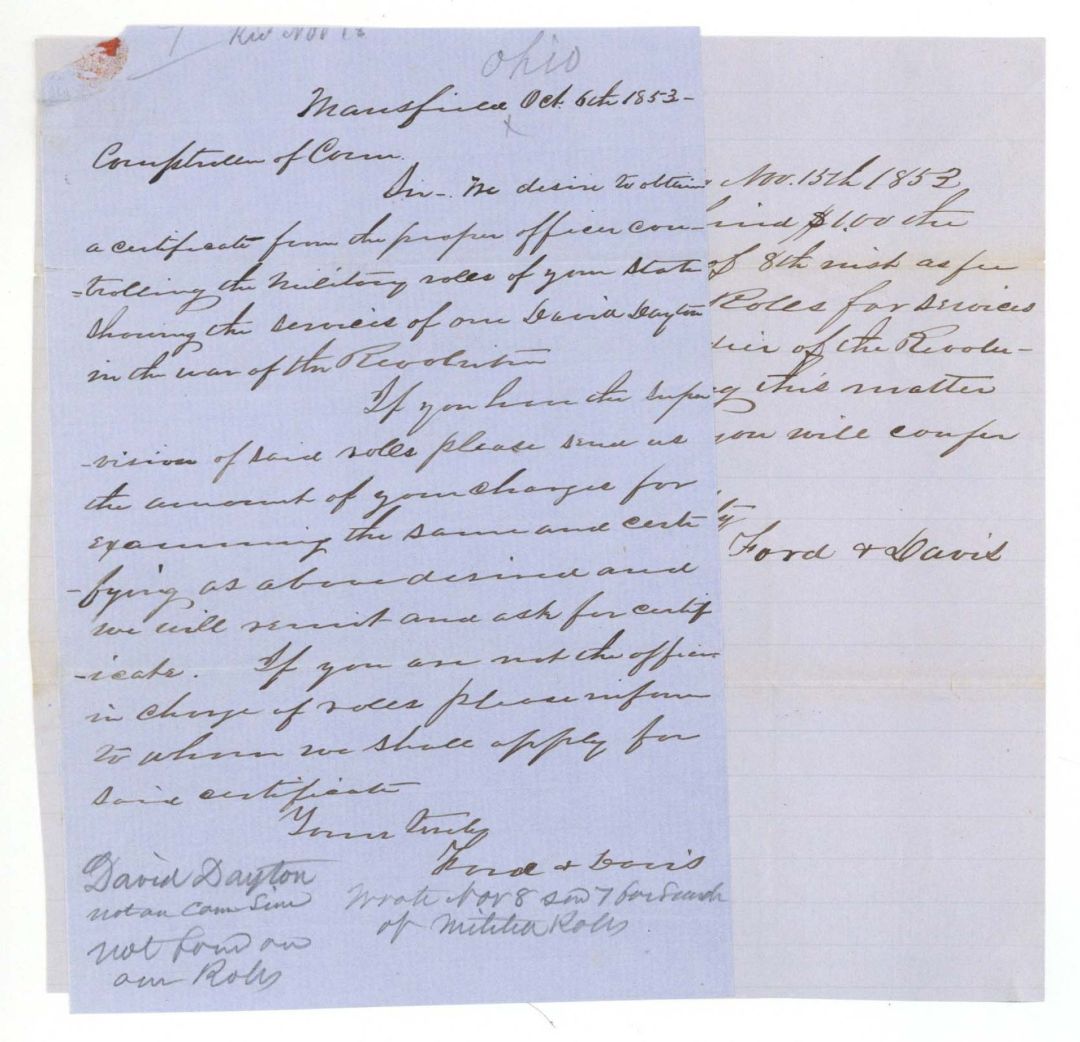 Ohio
Mansfield Oct. 6th 1853-
Comptroller of Conn.
Sir- We desire to obtain
a certificate from the proper officer con-
-trolling the Military roles of your State
showing the services of one David Dayton
in the war of the Revolution
If you have the super
-vision of said rolls please send us
the amount of your charges for
examining the same and certi
-fying as above desired and
we will remit and ask for certif
-icate. If you are not the officer
in charge of roles please inform
to whom we shall apply for
said certificate
Yours truly
Ford & Davis
David Dayton
not found on
our Rolls
Wrote Nov 8
of Militia Rolls
Nov. 15th 1853
$1.00 the
of 8th inst as per
Roles for services
of the Revolu-
this matter
you will confer
Ford & Davis